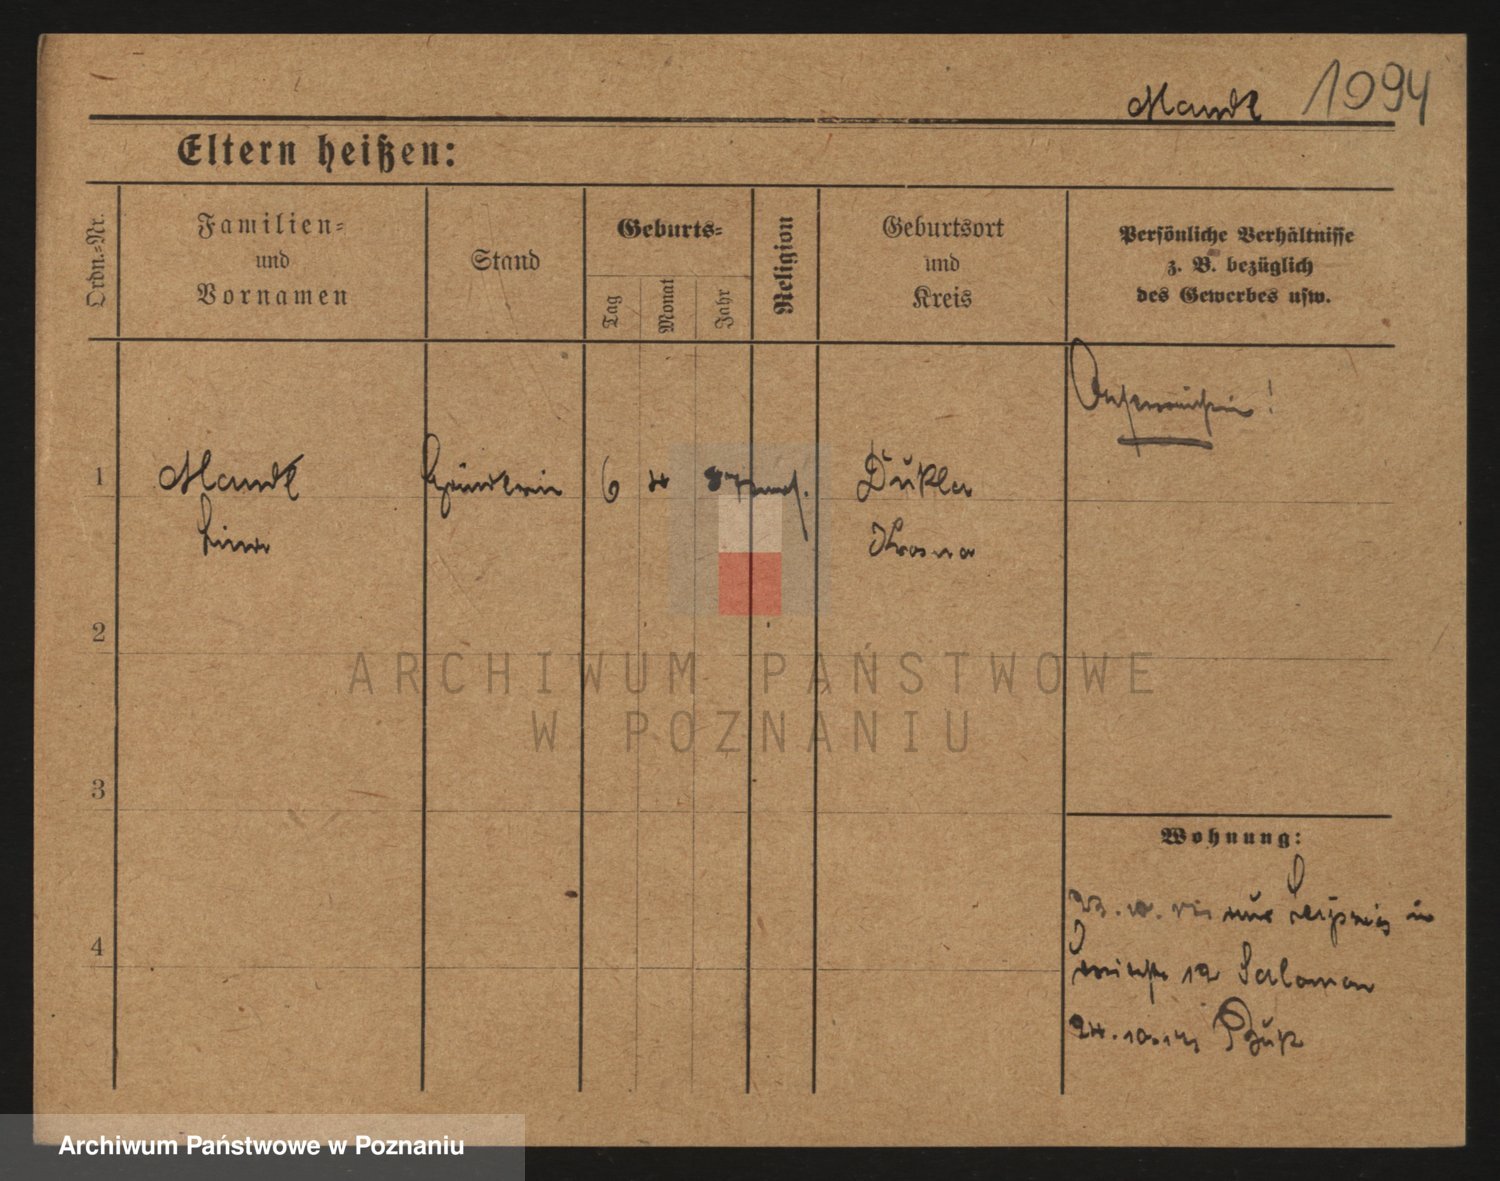 Mandl 1094
Eltern heißen:
Ordn.-Nr.
Familien-
und
Vornamen
Stand
Geburts-
Tag
Monat
Jahr
Religion
Geburtsort
und
Kreis
Persönliche Verhältnisse
z. B. bezüglich
des Gewerbes usw.
1
Mandl
6 4 87 mos.
Dukla
Krosno
2
3
4
Wohnung:
23. 10. aus Leipzig in
12 Salomon
24. 10.
ARCHIWUM PAŃSTWOWE
W POZNANIU
Archiwum Państwowe w Poznaniu